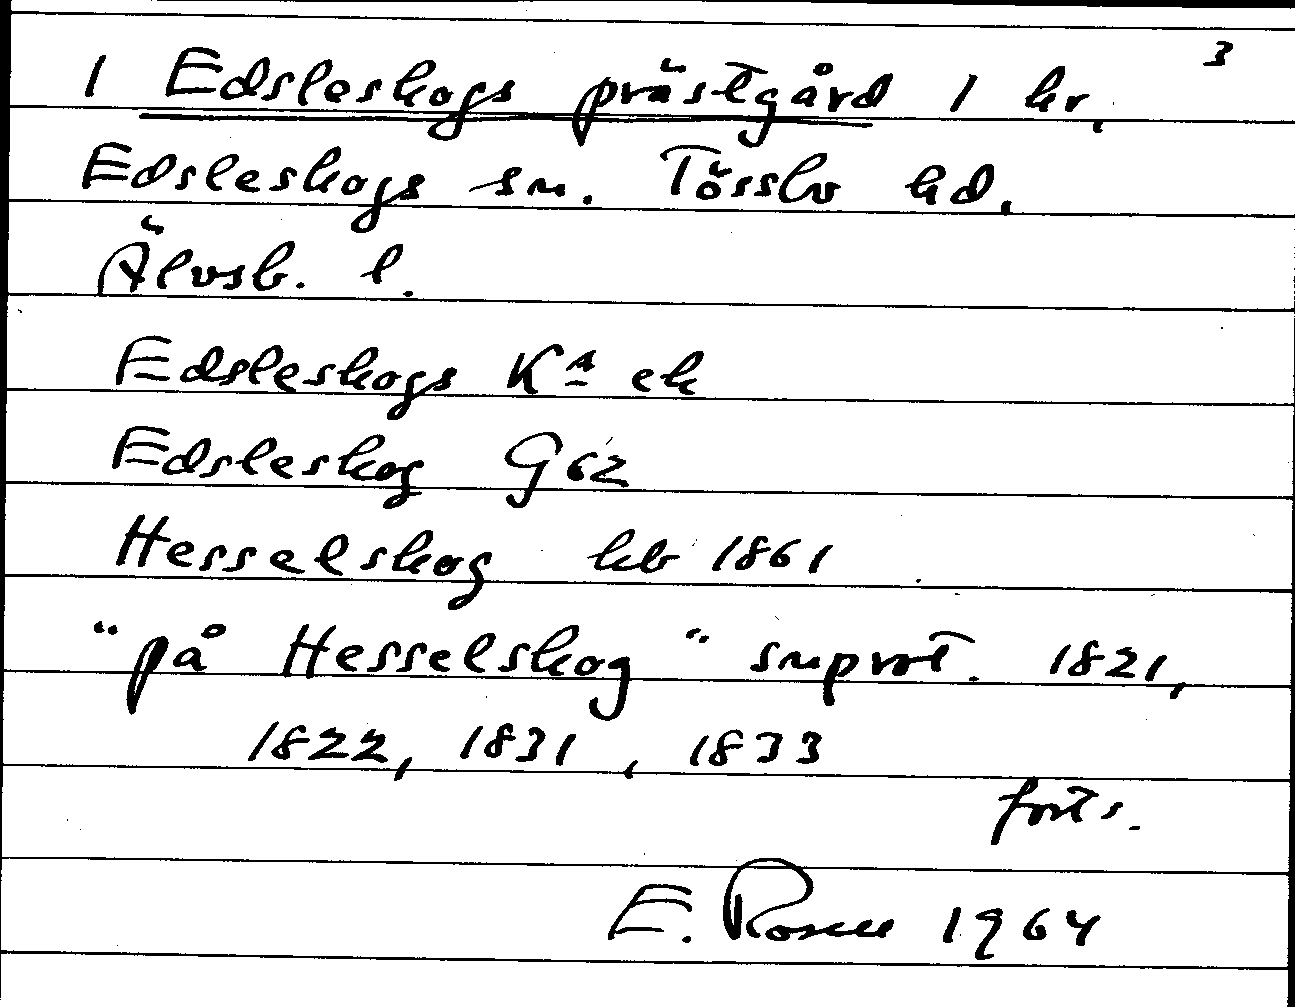 3
1 Edsleskogs prästgård 1 hr.
Edsleskogs sn. Tössbo hd.
Älvsb. l.
Edsleskogs Ka ek
Edsleskog G 62
Hesselskog kb 1861
"på Hesselskog" snprot. 1821,
1822, 1831, 1833
forts.
E. Rosen 1964